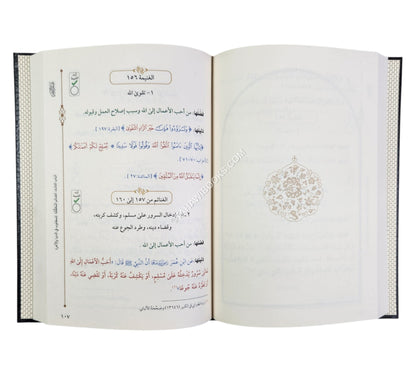 الغنيمة ١٥٦
١- تقوى الله
فضلها: من أحب الأعمال إلى الله وسبب إصلاح العمل وقبوله.
دليلها: ﴿وَتَزَوَّدُوا فَإِنَّ خَيْرَ الزَّادِ التَّقْوَى﴾ [البقرة: ١٩٧]
﴿يَا أَيُّهَا الَّذِينَ آمَنُوا اتَّقُوا اللَّهَ وَقُولُوا قَوْلًا سَدِيدًا ۝ يُصْلِحْ لَكُمْ أَعْمَالَكُمْ﴾
٧٠-٧١]
﴿إِنَّمَا يَتَقَبَّلُ اللَّهُ مِنَ الْمُتَّقِينَ﴾ [المائدة: ٢٧]
الغنائم من ١٥٧ إلى ١٦٠
٢-٥ إدخال السرور على مسلم، وكشف كربته،
وقضاء دينه، وطرد الجوع عنه
فضلها: من أحب الأعمال إلى الله.
دليلها: عن ابن عمر أن النبي ﷺ قال: «أَحَبُّ الأَعْمَالِ إِلَى اللهِ
سُرُورٌ يُدْخِلُهُ عَلَى مُسْلِمٍ، أَوْ يَكْشِفُ عَنْهُ كُرْبَةً، أَوْ يَقْضِي عَنْهُ
دَيْنًا، أَوْ تَطْرُدُ عَنْهُ جُوعًا»
١٠٧